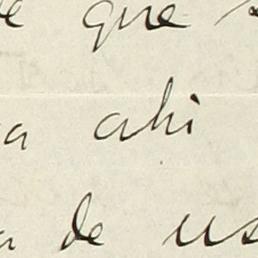 e que
a ahi
a de us